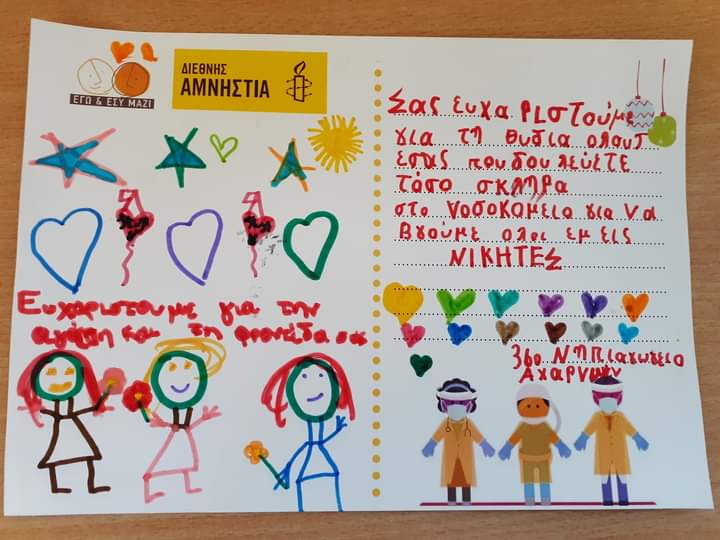 ΕΓΩ & ΕΣΥ ΜΑΖΙ
ΔΙΕΘΝΗΣ
ΑΜΝΗΣΤΙΑ
Ευχαριστουμε για την
αγάπη και τη φροντίδα σας
Σας ευχαριστούμε
για τη θυσία
εσας που δουλεύετε
τόσο σκληρα
στο νοσοκομειο για να
βγούμε ολοι εμεις
ΝΙΚΗΤΕΣ
36ο Νηπιαγωγειο
Αχαρνών